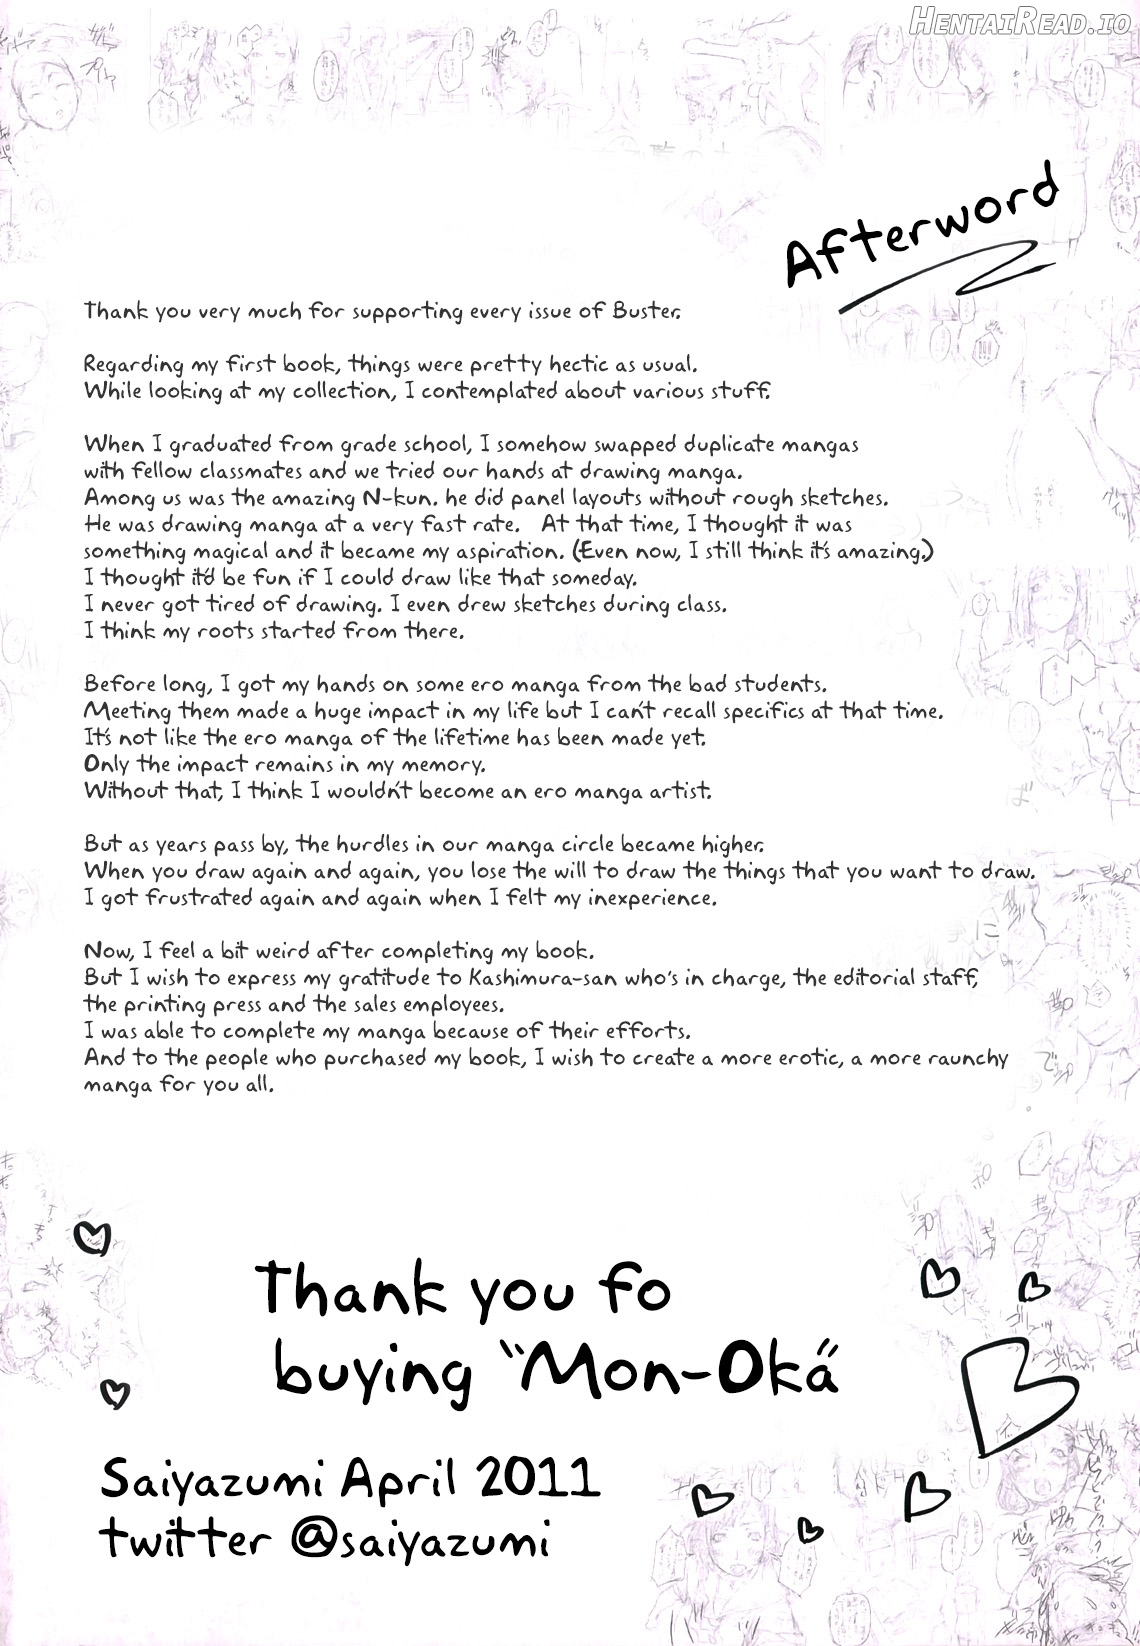 HENTAIREAD.IO
Afterword
Thank you very much for supporting every issue of Buster.
Regarding my first book, things were pretty hectic as usual.
While looking at my collection, I contemplated about various stuff.
When I graduated from grade school, I somehow swapped duplicate mangas
with fellow classmates and we tried our hands at drawing manga.
Among us was the amazing N-kun. he did panel layouts without rough sketches.
He was drawing manga at a very fast rate. At that time, I thought it was
something magical and it became my aspiration. (Even now, I still think it's amazing.)
I thought it'd be fun if I could draw like that someday.
I never got tired of drawing. I even drew sketches during class.
I think my roots started from there.
Before long, I got my hands on some ero manga from the bad students.
Meeting them made a huge impact in my life but I can't recall specifics at that time.
It's not like the ero manga of the lifetime has been made yet.
Only the impact remains in my memory.
Without that, I think I wouldn't become an ero manga artist.
But as years pass by, the hurdles in our manga circle became higher.
When you draw again and again, you lose the will to draw the things that you want to draw.
I got frustrated again and again when I felt my inexperience.
Now, I feel a bit weird after completing my book.
But I wish to express my gratitude to Kashimura-san who's in charge, the editorial staff,
the printing press and the sales employees.
I was able to complete my manga because of their efforts.
And to the people who purchased my book, I wish to create a more erotic, a more raunchy
manga for you all.
Thank you fo
buying "Mon-Oka"
Saiyazumi April 2011
twitter @saiyazumi